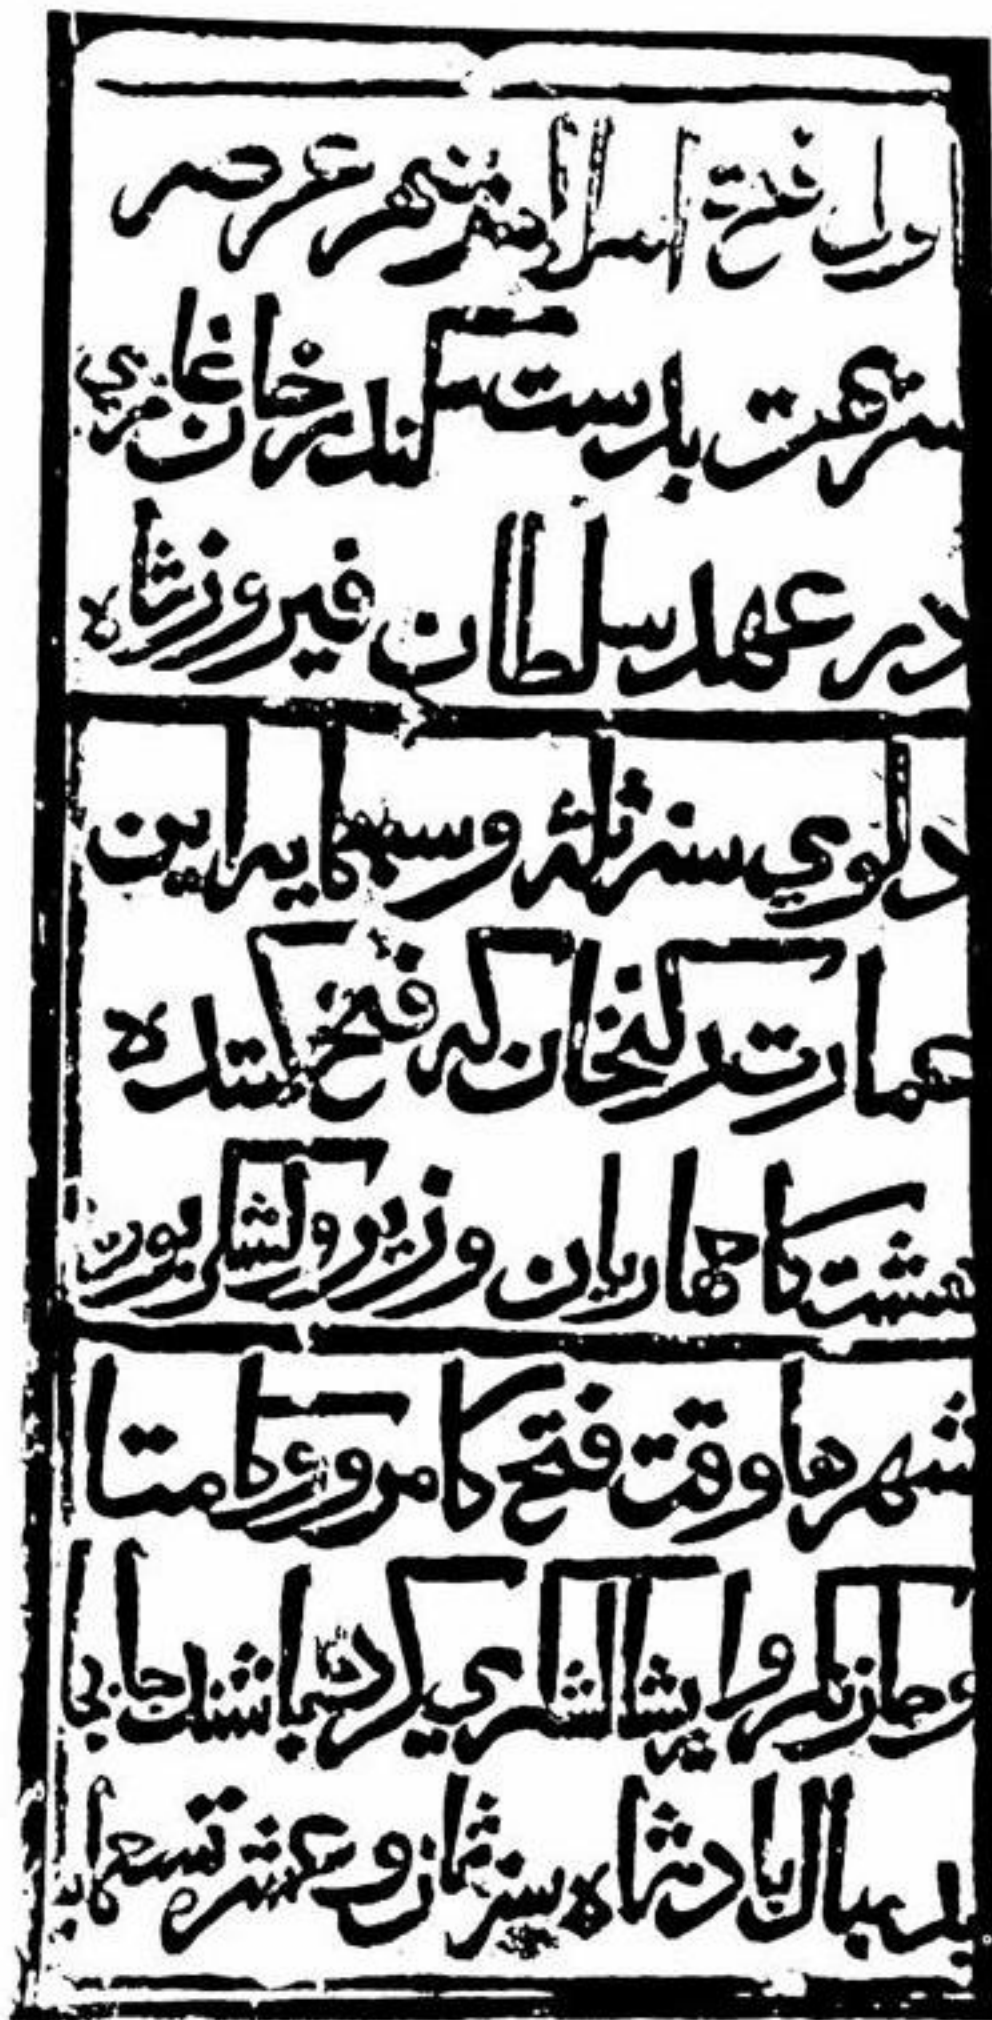 اول فتح اسلام شهر عرصه
سریهت بدست سکندر خان غازی
در عهد سلطان فیروز شاه
دلوی سنه ثلث و سبعمایه این
عمارت رکنخان که فتح کننده
هشت کامهاریان وزیر و لشکر بوده
شهرها وقت فتح کامرو و کامتا
و جازنکر و اریشا لشکری کرده باشند جابجا
بدنبال بادشاه سنه ثمان و عشر تسعمایه